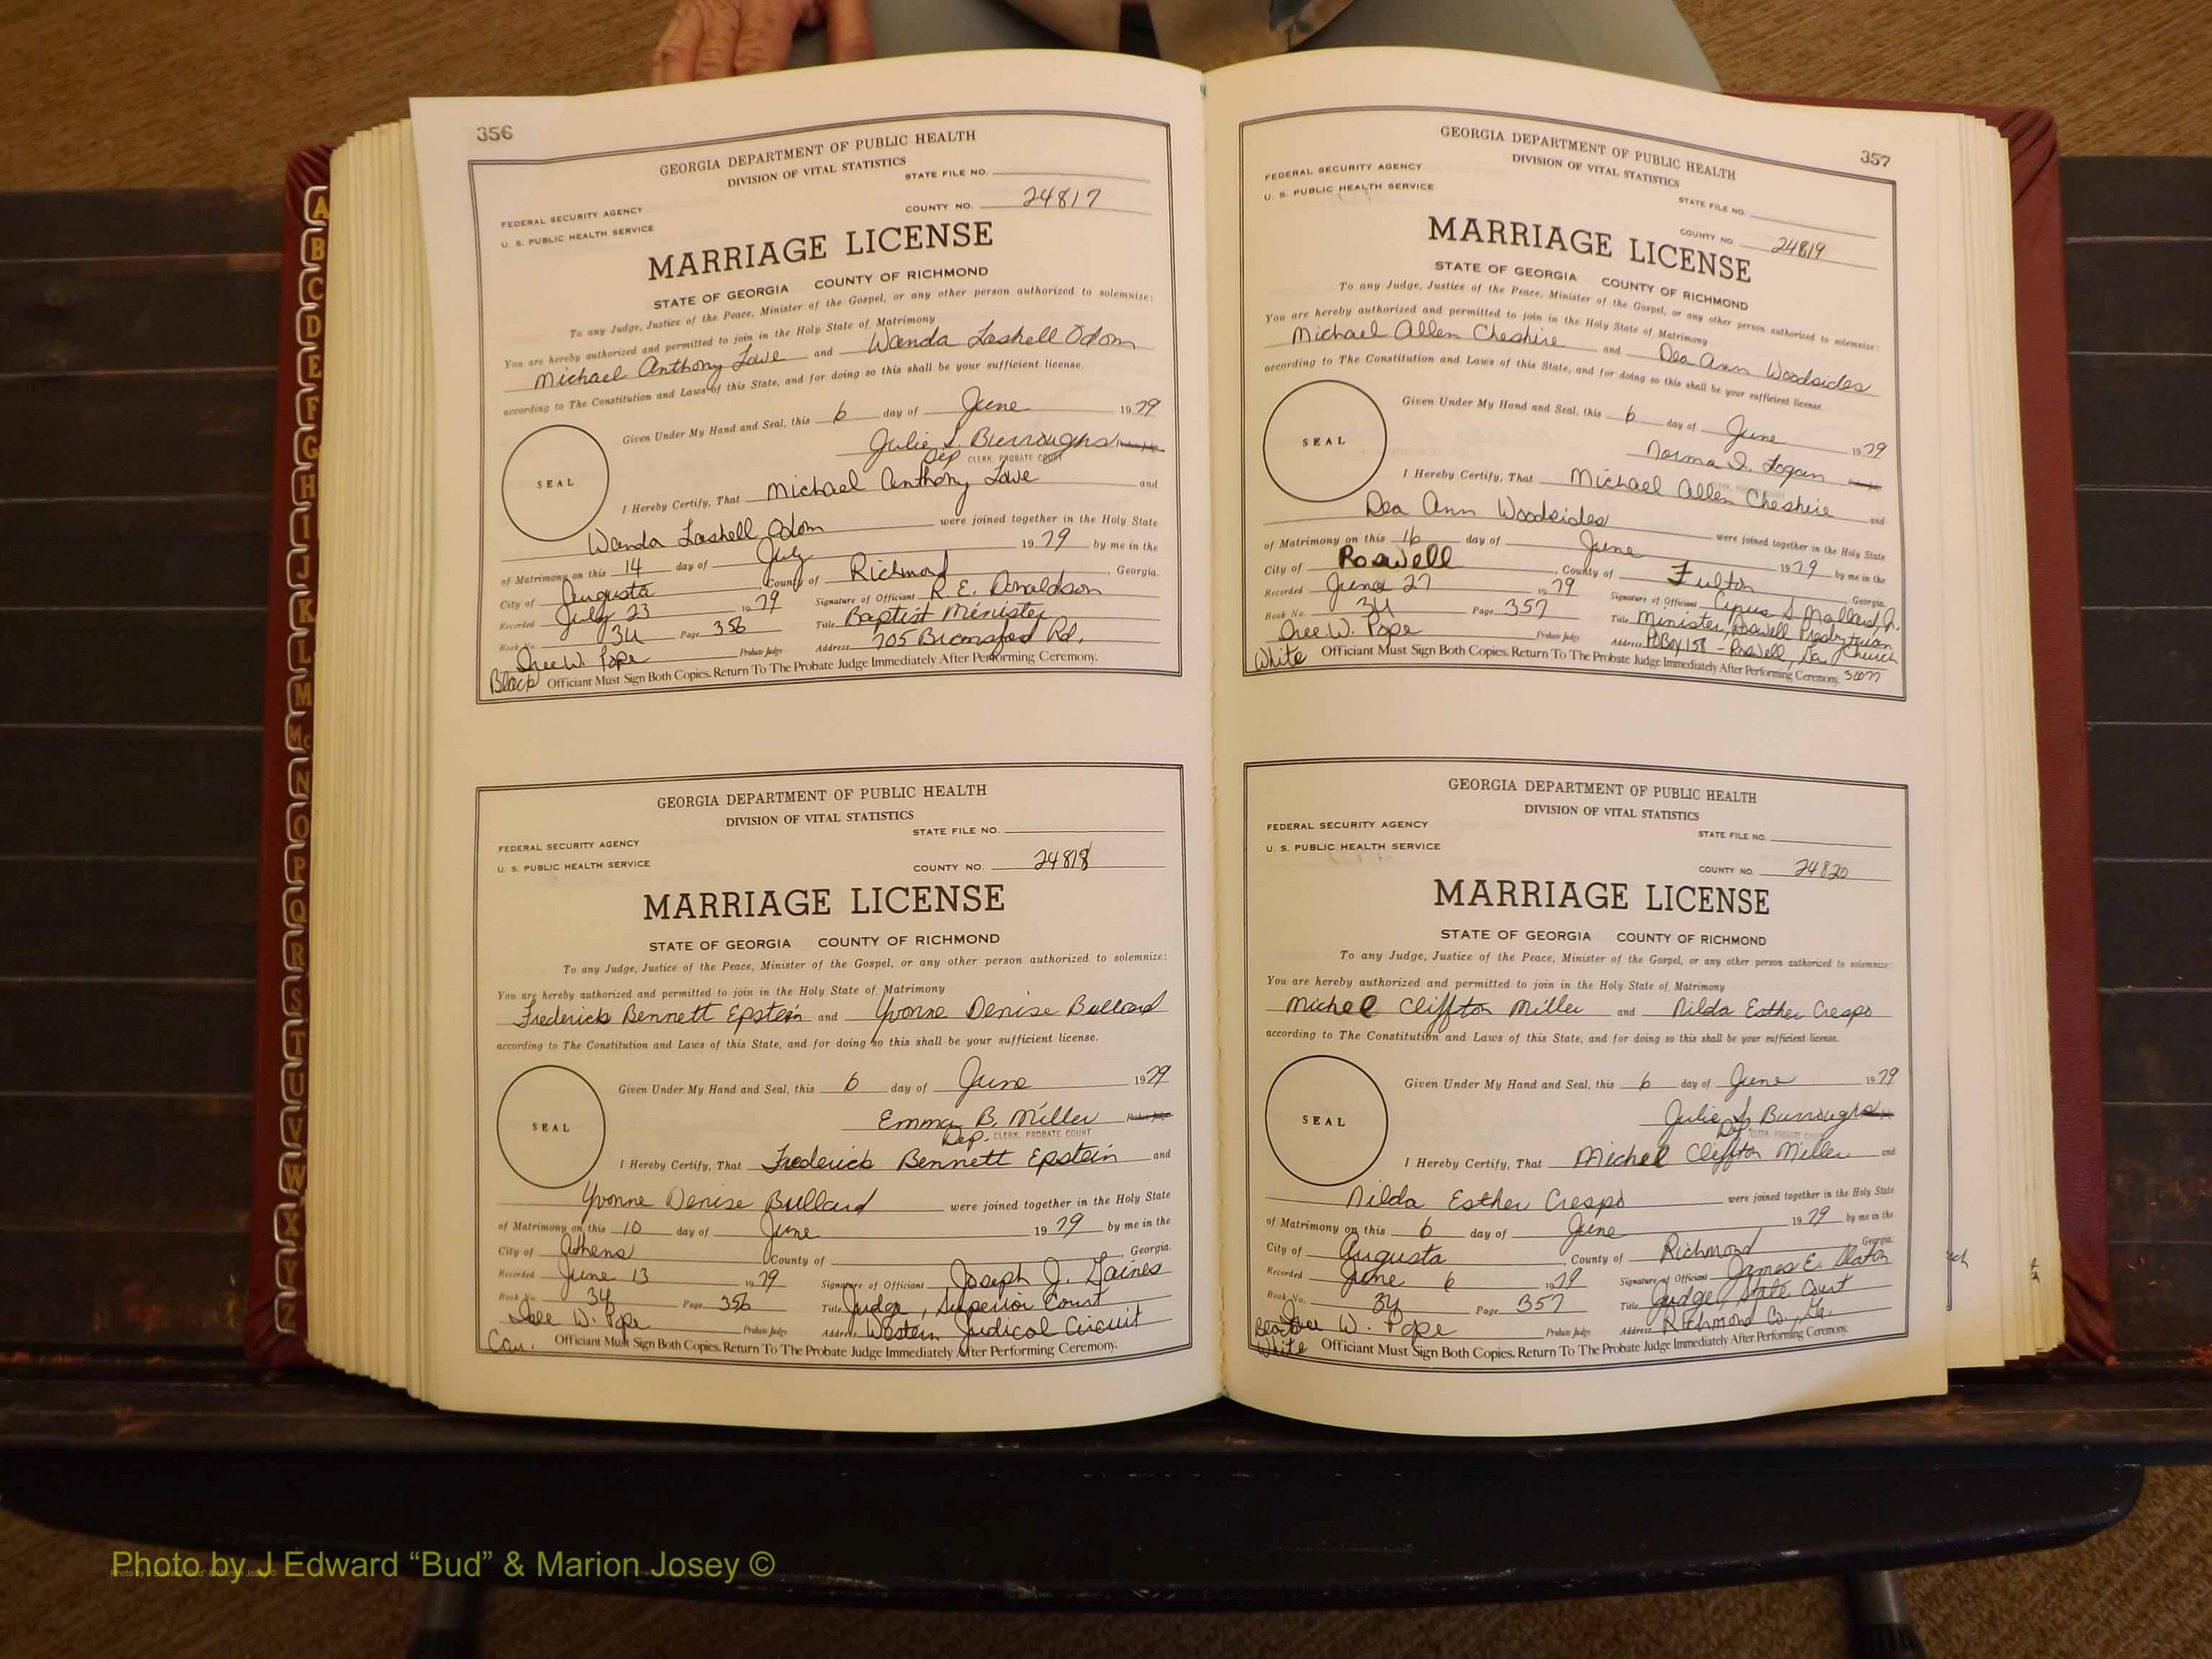 356
GEORGIA DEPARTMENT OF PUBLIC HEALTH
DIVISION OF VITAL STATISTICS
STATE FILE NO.
FEDERAL SECURITY AGENCY
COUNTY NO. 24817
U. S. PUBLIC HEALTH SERVICE
MARRIAGE LICENSE
STATE OF GEORGIA COUNTY OF RICHMOND
To any Judge, Justice of the Peace, Minister of the Gospel, or any other person authorized to solemnize:
You are hereby authorized and permitted to join in the Holy State of Matrimony
Michael Anthony Lowe and Wanda Lashell Odom
according to The Constitution and Laws of this State, and for doing so this shall be your sufficient license.
Given Under My Hand and Seal, this 6 day of June 1979
Julie S. Burroughs Probate Judge
Dep CLERK, PROBATE COURT
SEAL
I Hereby Certify, That Michael Anthony Lowe and
Wanda Lashell Odom were joined together in the Holy State
of Matrimony on this 14 day of July 1979 by me in the
City of Augusta, County of Richmond, Georgia.
Recorded July 23 1979 Signature of Officiant R. E. Donaldson
Book No. 34 Page 356 Title Baptist Minister
Dree W. Pope Probate Judge Address 705 Rd.
Black Officiant Must Sign Both Copies. Return To The Probate Judge Immediately After Performing Ceremony.
GEORGIA DEPARTMENT OF PUBLIC HEALTH
DIVISION OF VITAL STATISTICS
STATE FILE NO.
FEDERAL SECURITY AGENCY
COUNTY NO. 24818
U. S. PUBLIC HEALTH SERVICE
MARRIAGE LICENSE
STATE OF GEORGIA COUNTY OF RICHMOND
To any Judge, Justice of the Peace, Minister of the Gospel, or any other person authorized to solemnize:
You are hereby authorized and permitted to join in the Holy State of Matrimony
Frederick Bennett Epstein and Yvonne Denise Bullard
according to The Constitution and Laws of this State, and for doing so this shall be your sufficient license.
Given Under My Hand and Seal, this 6 day of June 1979
Emma B. Miller Probate Judge
Dep. CLERK, PROBATE COURT
SEAL
I Hereby Certify, That Frederick Bennett Epstein and
Yvonne Denise Bullard were joined together in the Holy State
of Matrimony on this 10 day of June 1979 by me in the
City of Athens, County of , Georgia.
Recorded June 13 1979 Signature of Officiant Joseph J. Gaines
Book No. 34 Page 356 Title Judge, Superior Court
Dree W. Pope Probate Judge Address Western Judical Circuit
Cau. Officiant Must Sign Both Copies. Return To The Probate Judge Immediately After Performing Ceremony.
357
GEORGIA DEPARTMENT OF PUBLIC HEALTH
DIVISION OF VITAL STATISTICS
FEDERAL SECURITY AGENCY
STATE FILE NO.
U. S. PUBLIC HEALTH SERVICE
COUNTY NO. 24819
MARRIAGE LICENSE
STATE OF GEORGIA COUNTY OF RICHMOND
To any Judge, Justice of the Peace, Minister of the Gospel, or any other person authorized to solemnize:
You are hereby authorized and permitted to join in the Holy State of Matrimony
Michael Allen Cheshire and Dea Ann Woodsides
according to The Constitution and Laws of this State, and for doing so this shall be your sufficient license.
Given Under My Hand and Seal, this 6 day of June 1979
Norma D. Logan
SEAL
I Hereby Certify, That Michael Allen Cheshire and
Dea Ann Woodsides were joined together in the Holy State
of Matrimony on this 16 day of June 1979 by me in the
City of Roswell, County of Fulton Georgia.
Recorded June 27 1979 Signature of Officiant Cyrus S. Mallard Jr.
Book No. 34 Page 357 Title Minister, Roswell Presbyterian Church
Dree W. Pope Probate Judge Address PO Box 158 - Roswell, Ga. 30077
White Officiant Must Sign Both Copies. Return To The Probate Judge Immediately After Performing Ceremony.
GEORGIA DEPARTMENT OF PUBLIC HEALTH
DIVISION OF VITAL STATISTICS
FEDERAL SECURITY AGENCY
STATE FILE NO.
U. S. PUBLIC HEALTH SERVICE
COUNTY NO. 24820
MARRIAGE LICENSE
STATE OF GEORGIA COUNTY OF RICHMOND
To any Judge, Justice of the Peace, Minister of the Gospel, or any other person authorized to solemnize:
You are hereby authorized and permitted to join in the Holy State of Matrimony
Michel Cliffton Miller and Nilda Esther Crespo
according to The Constitution and Laws of this State, and for doing so this shall be your sufficient license.
Given Under My Hand and Seal, this 6 day of June 1979
Julie S. Burroughs
Dep. CLERK, PROBATE COURT
SEAL
I Hereby Certify, That Michel Cliffton Miller and
Nilda Esther Crespo were joined together in the Holy State
of Matrimony on this 6 day of June 1979 by me in the
City of Augusta, County of Richmond Georgia.
Recorded June 6 1979 Signature of Officiant James E. Slaton
Book No. 34 Page 357 Title Judge, State Court
Dree W. Pope Probate Judge Address Richmond Co., Ga.
White Officiant Must Sign Both Copies. Return To The Probate Judge Immediately After Performing Ceremony.
A
B
C
D
E
F
G
H
I
J
K
L
M
Mc
N
O
P
Q
R
S
T
U
V
W
X
Y
Z
Photo by J Edward “Bud” & Marion Josey ©